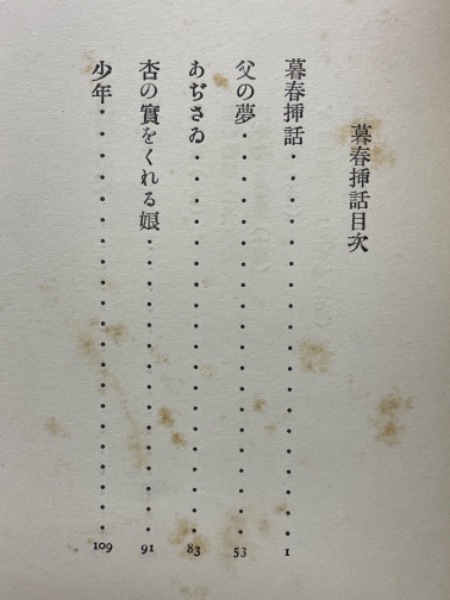 暮春揷話目次
暮春揷話・・・・・・・・・・・・・・・・・・・・1
父の夢・・・・・・・・・・・・・・・・・・・・53
あぢさゐ・・・・・・・・・・・・・・・・・・・83
杏の實をくれる娘・・・・・・・・・・・・・・・91
少年・・・・・・・・・・・・・・・・・・・・・109